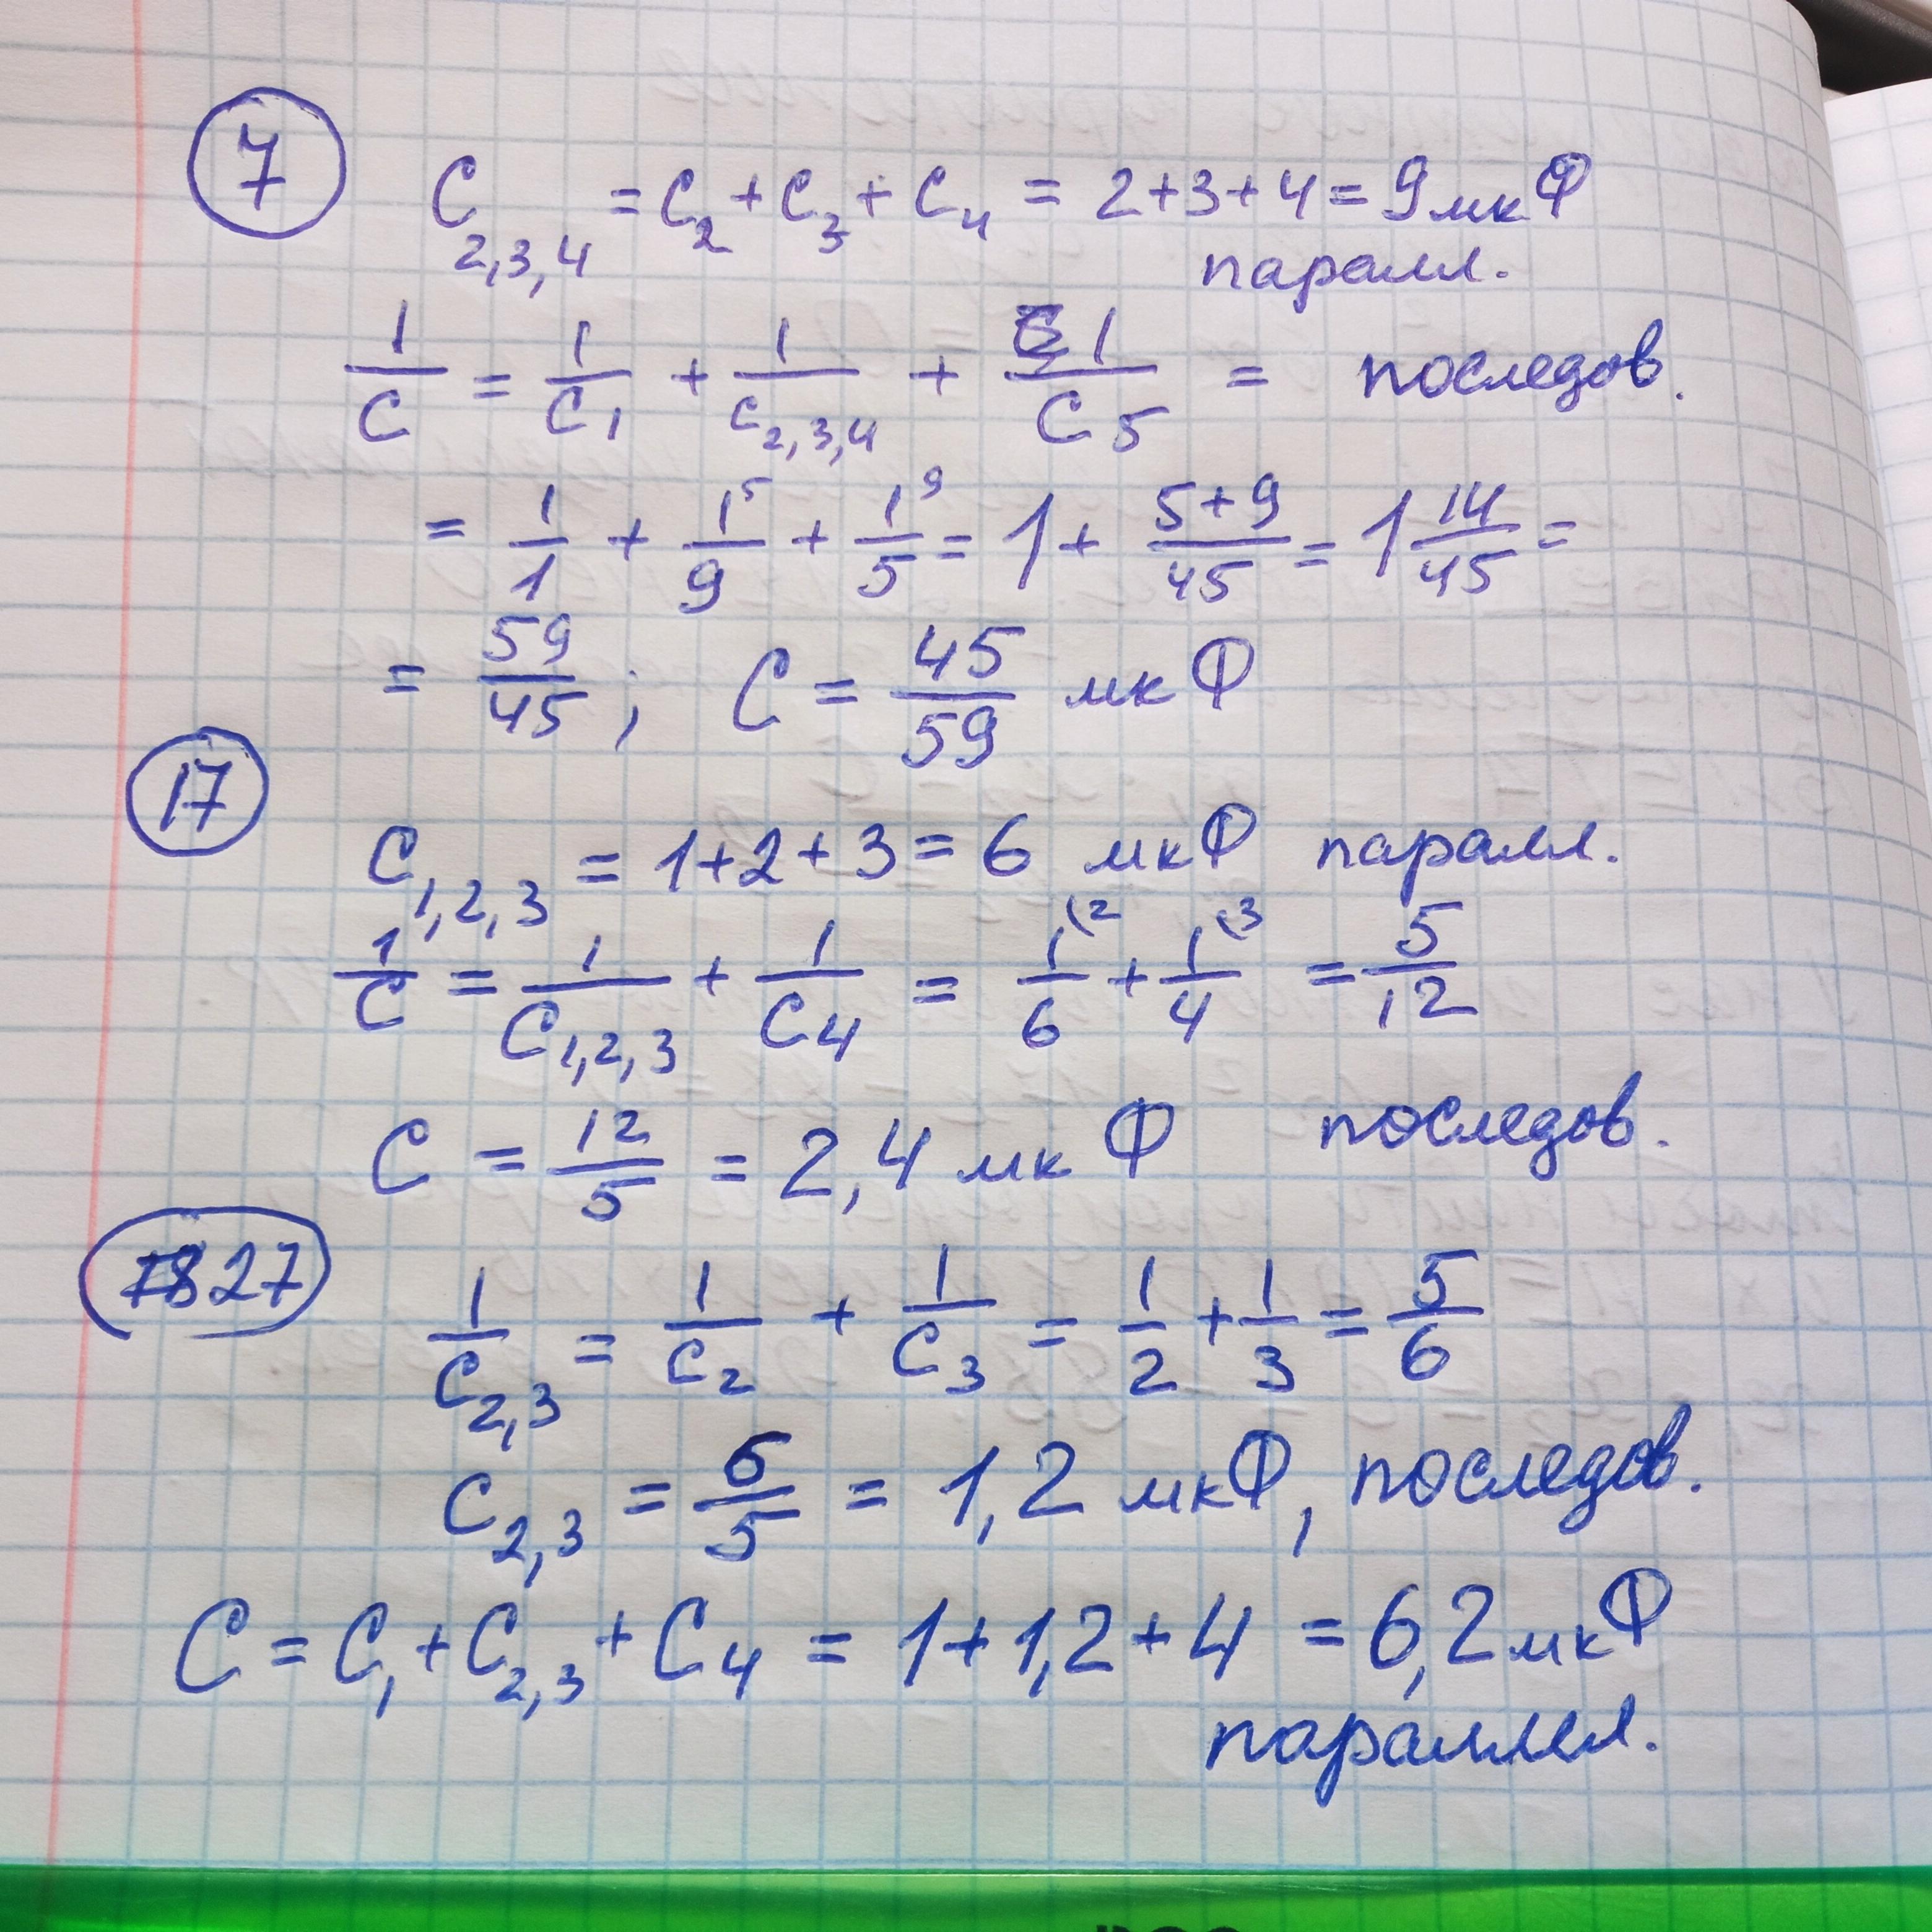 7
C₂,₃,₄ = C₂ + C₃ + C₄ = 2+3+4 = 9 мкФ
паралл.
1/C = 1/C₁ + 1/C₂,₃,₄ + 1/C5 = последов.
= 1/1 + 1⁵/9 + 1⁹/5 = 1 + (5+9)/45 = 1 14/45 =
= 59/45 ; C = 45/59 мкФ
17
C₁,₂,₃ = 1+2+3 = 6 мкФ паралл.
1/C = 1/C₁,₂,₃ + 1/C₄ = 1⁽²/6 + 1⁽³/4 = 5/12
C = 12/5 = 2,4 мкФ последов.
27
1/C₂,₃ = 1/C₂ + 1/C₃ = 1/2 + 1/3 = 5/6
C₂,₃ = 6/5 = 1,2 мкФ, последов.
C = C₁ + C₂,₃ + C₄ = 1+1,2+4 = 6,2 мкФ
параллел.